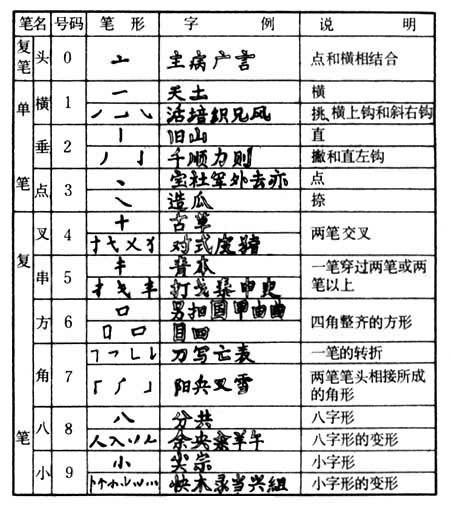 笔名 号码 笔形 字例 说明
复笔 头 0 亠 主病广言 点和横相结合
单笔 横 1 一 天土 横
㇀ 活培织兄风 挑、横上钩和斜右钩
垂 2 丨 旧山 直
丿亅 千顺力则 撇和直左钩
点 3 丶 宝社军外去亦 点
㇏ 造瓜 捺
复笔 叉 4 十 古草 两笔交叉
扌乂 对式皮猪
串 5 キ 青本 一笔穿过两笔或两笔以上
扌戈 打戈 申史
方 6 口 男扣国甲由曲 四角整齐的方形
口 目四
角 7 刀写亡表 一笔的转折
阳央又雪 两笔笔头相接所成的角形
八 8 八 分共 八字形
人入 余央羊午 八字形的变形
小 9 小 尖宗 小字形
快木录当兴組 小字形的变形